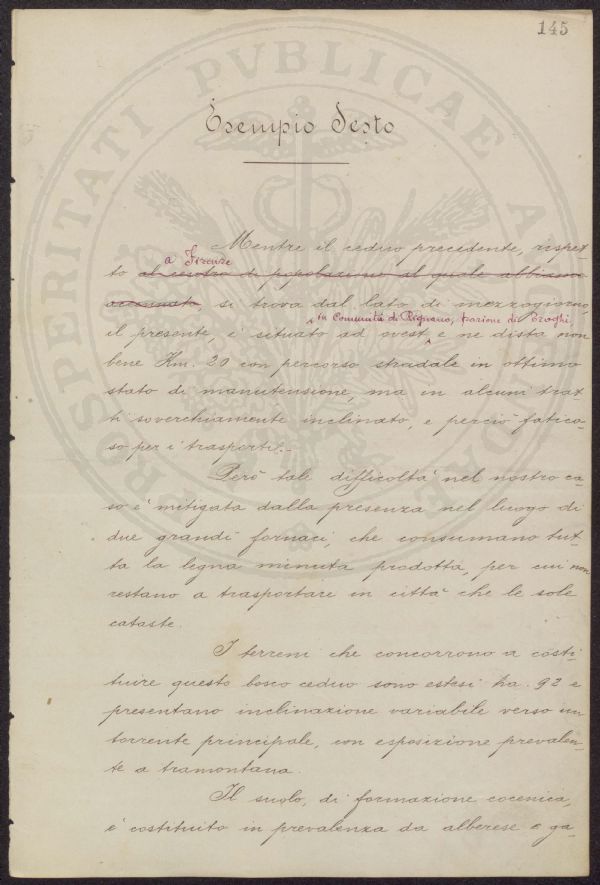 145
PROSPERITATI PVBLICAE AVGENDAE
Esempio Sesto
Mentre il ceduo precedente, rispet-
a Firenze
to al centro di popolazione al quale abbiamo
accennato, si trova dal lato di mezzogiorno,
in Comunità di Rignano, frazione di Troghi,
il presente, è situato ad ovest e ne dista non
bene Km. 20 con percorso stradale in ottimo
stato di manutensione, ma in alcuni trat-
ti soverchiamente inclinato, e perciò fatico-
so per i trasporti.-
Però tale difficoltà nel nostro ca-
so è mitigata dalla presenza nel luogo di
due grandi fornaci, che consumano tut-
ta la legna minuta prodotta, per cui non
restano a trasportare in città che le sole
cataste.
I terreni che concorrono a costi-
tuire questo bosco ceduo sono estesi ha. 92 e
presentano inclinazione variabile verso un
torrente principale, con esposizione prevalen-
te a tramontana.
Il suolo, di formazione eocenica,
è costituito in prevalenza da alberese e ga-